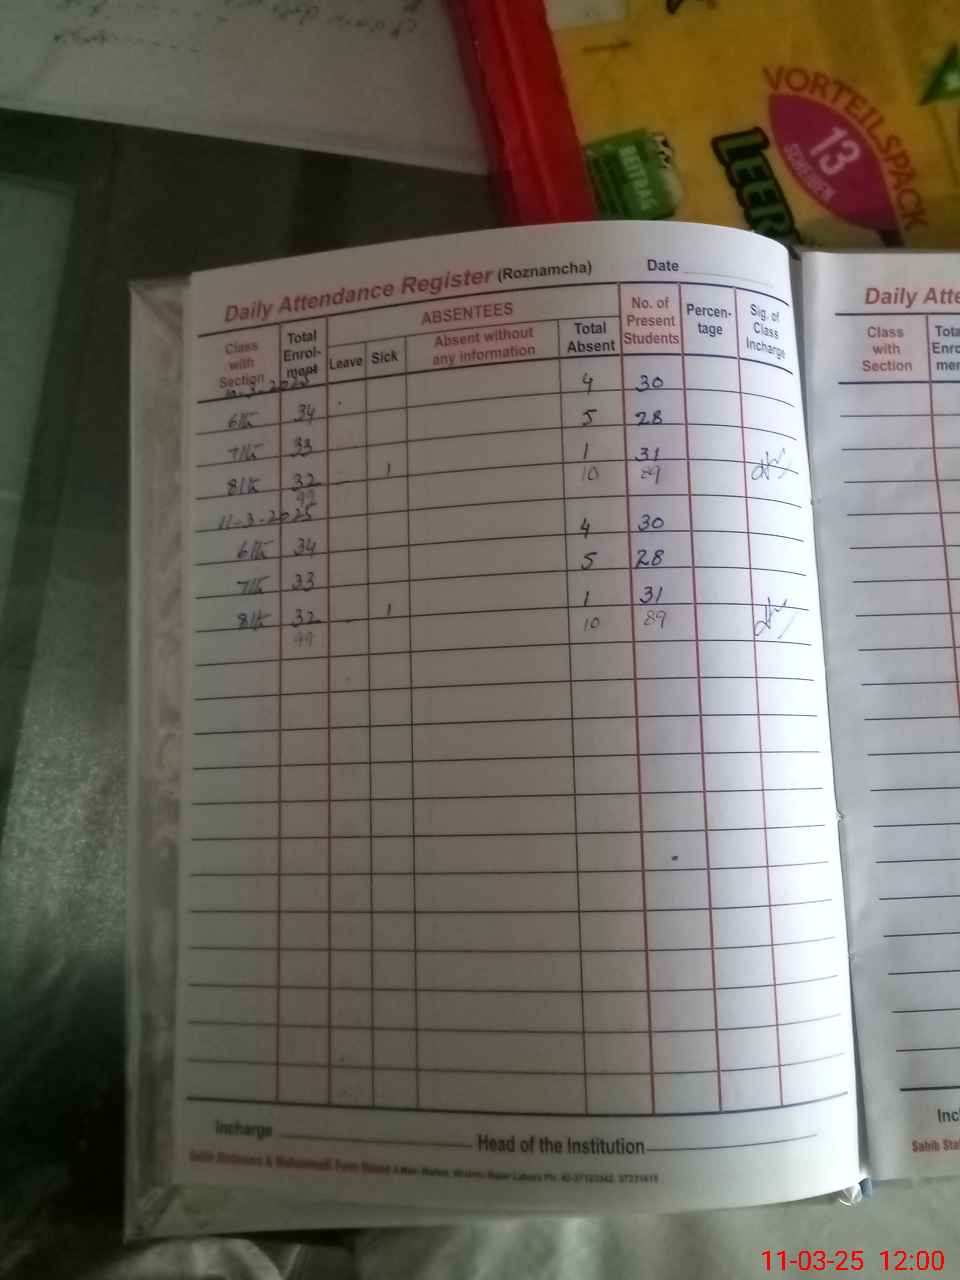 VORTEILSPACK
13
SCHEIBEN
BEITRAG
LEER
Daily Attendance Register (Roznamcha) Date
Class with Section
Total Enrol-ment
ABSENTEES
Leave
Sick
Absent without any information
Total Absent
No. of Present Students
Percen-tage
Sig. of Class Incharge
4 30
6th 34 5 28
7th 33 1 31
8th 32 - 1 10 89
99
11-3-2025 4 30
6th 34 5 28
7th 33 1 31
8th 32 - 1 10 89
99
Incharge Head of the Institution
Daily Atte
Class with Section
Tota
Enro
mer
Inc
Sahib Sta
11-03-25 12:00